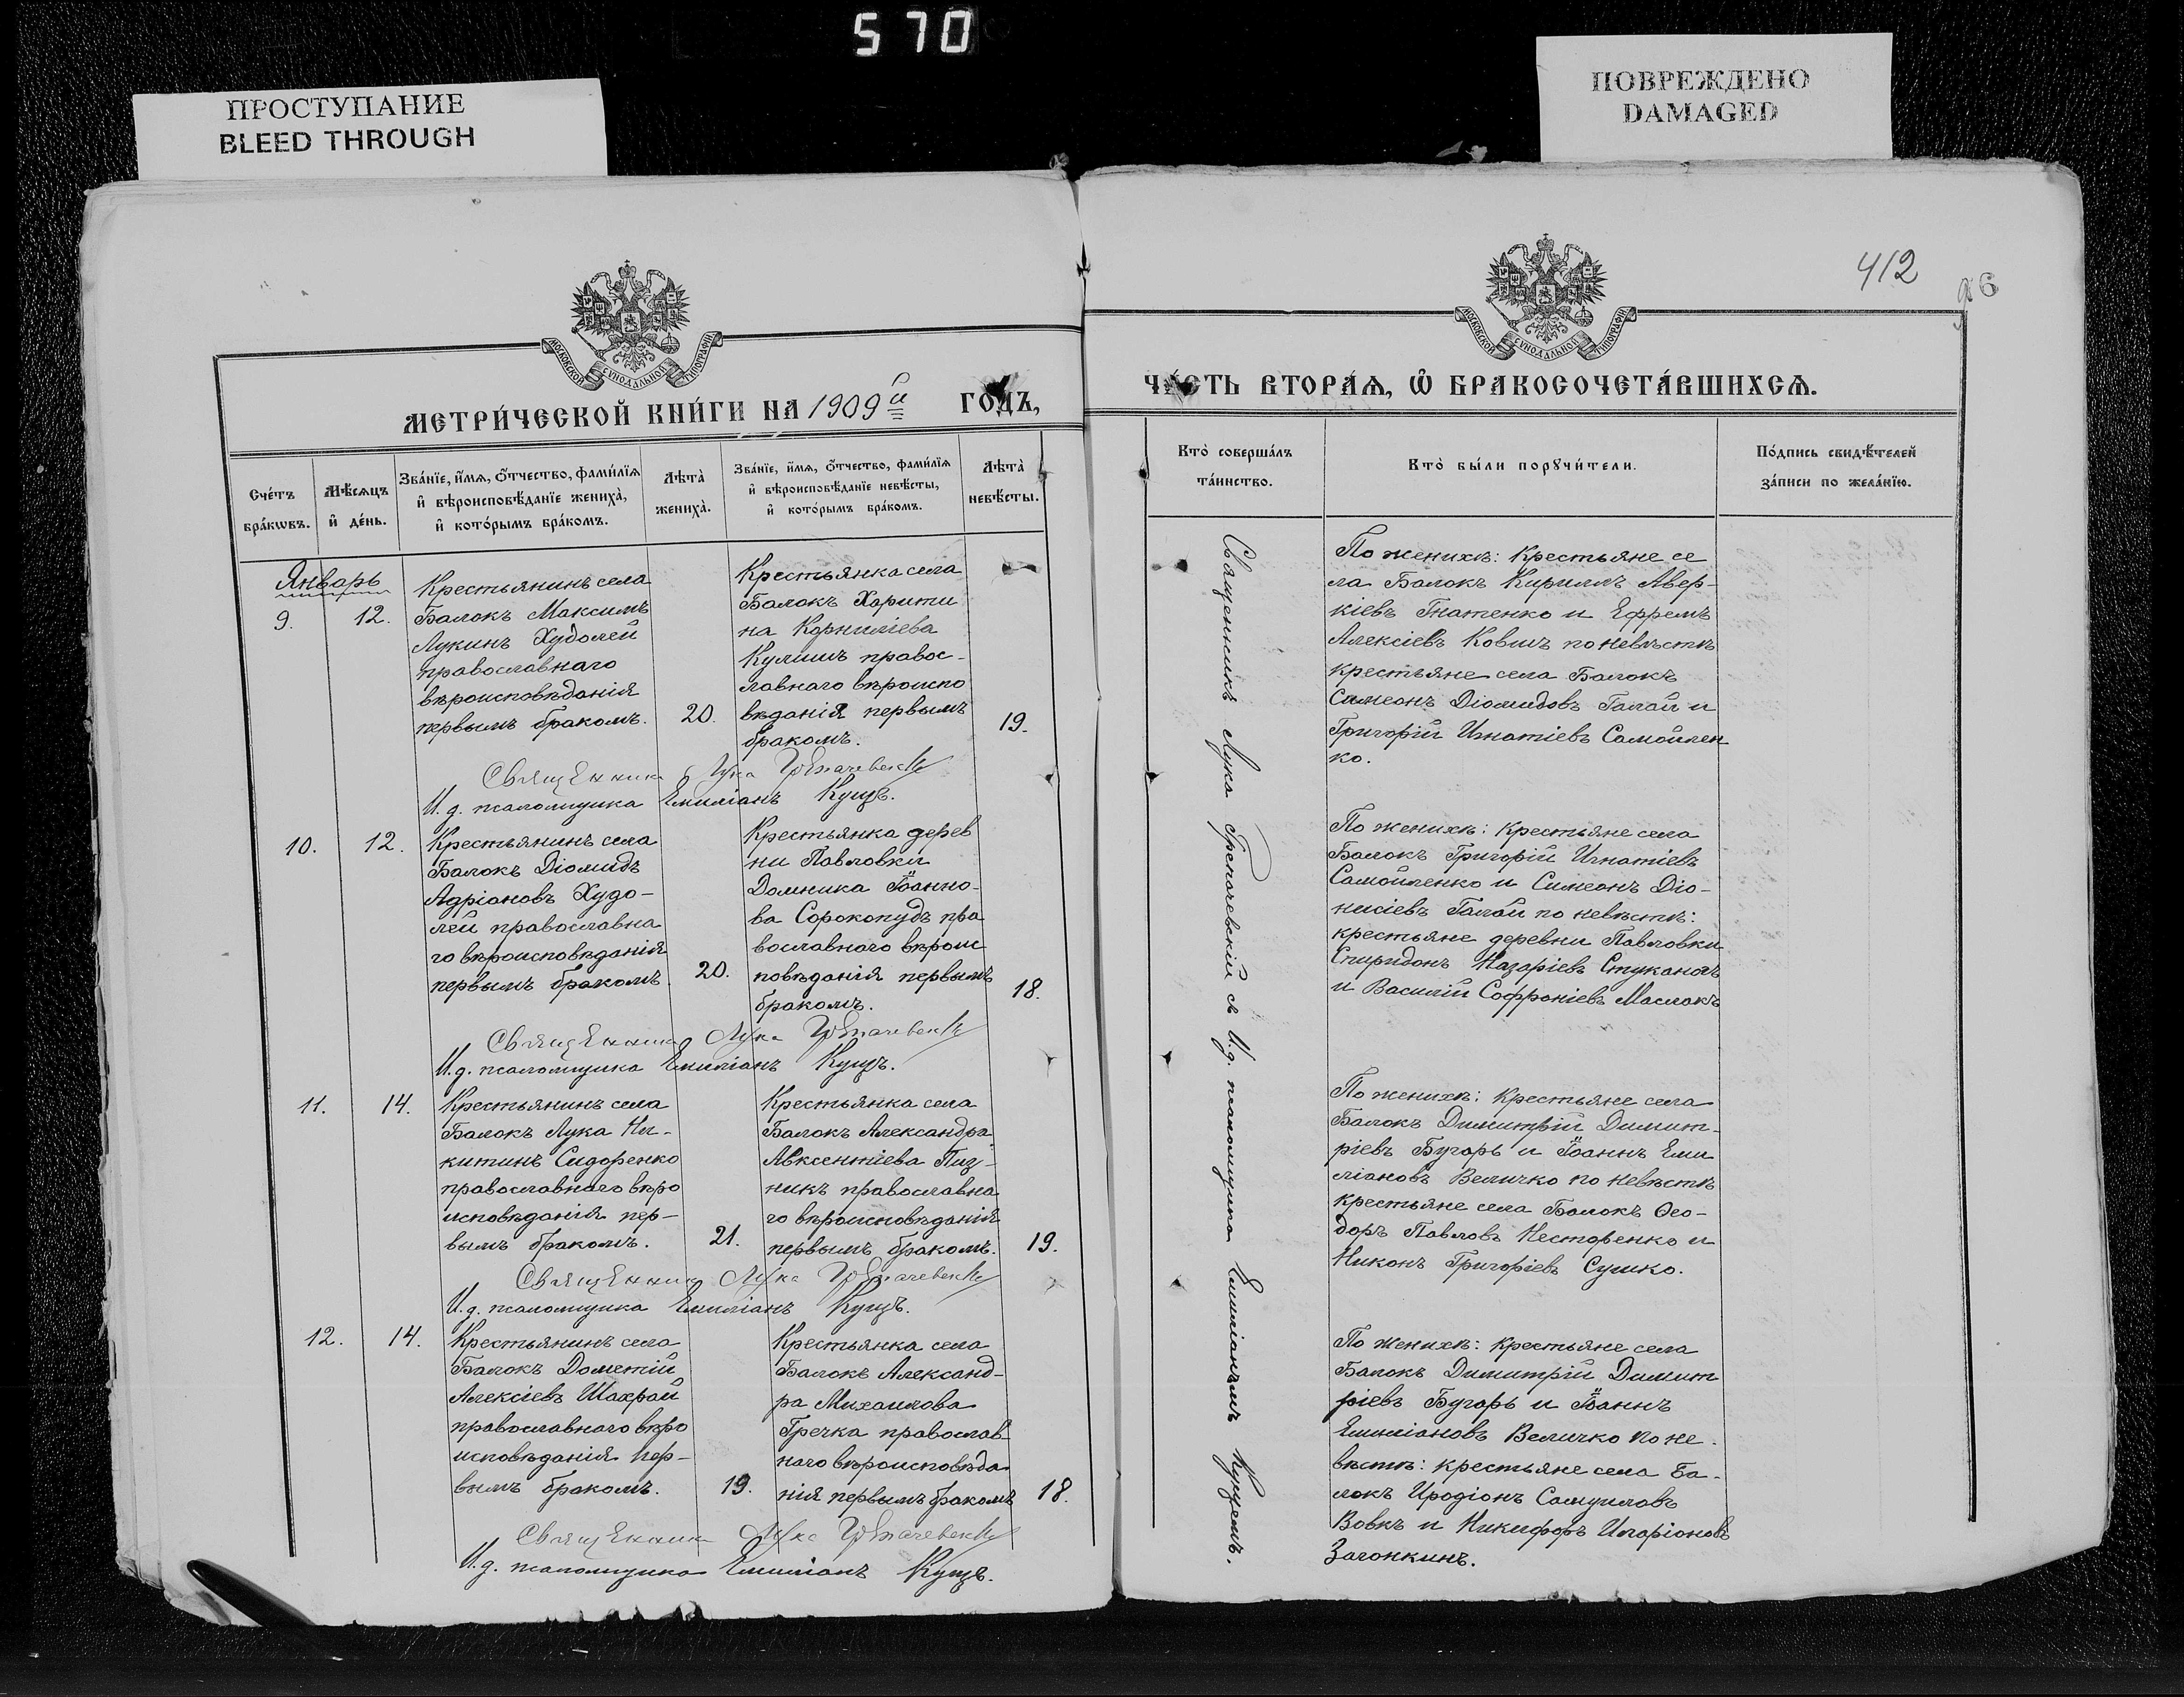 570
ПРОСТУПАНИЕ
BLEED THROUGH
ПОВРЕЖДЕНО
DAMAGED
412
96
МОСКОВСКОЙ СѴНОДАЛЬНОЙ ТИПОГРАФІИ
МЕТРИ́ЧЕСКОЙ КНИ́ГИ НА 1909й ГОДЪ,
Сче́тъ бра́кѡвъ.
Мѣ́сяцъ и҆ де́нь.
Зва́нїе, и҆́мѧ, ѻ҆́тчество, фами́лїѧ
и҆ вѣроисповѣ́данїе жениха̀,
и҆ кото́рымъ бра́комъ.
Лѣта̀ жениха̀.
Зва́нїе, и҆́мѧ, ѻ҆́тчество, фами́лїѧ
и҆ вѣроисповѣ́данїе невѣ́сты,
и҆ кото́рымъ бра́комъ.
Лѣта̀ невѣ́сты.
Январь
9.
12.
Крестьянинъ села
Балокъ Максимъ
Лукинъ Худолей
православнаго
вѣроисповѣданія
первымъ бракомъ.
20.
Крестьянка села
Балокъ Харити
на Корниліева
Кулишъ правос-
лавнаго вѣроиспо
вѣданія первымъ
бракомъ.
19.
Священникъ Лука Гречаневскій
И. д. псаломщика Емиліанъ Кущъ.
10.
12.
Крестьянинъ села
Балокъ Діомидъ
Адріановъ Худо-
лей православна
го вѣроисповѣданія
первымъ бракомъ
20.
Крестьянка дерев
ни Павловки
Домника Іоанно-
ва Сорокопудъ пра
вославнаго вѣроис
повѣданія первымъ
бракомъ.
18.
Священникъ Лука Гречаневскій
И. д. псаломщика Емиліанъ Кущъ.
11.
14.
Крестьянинъ села
Балокъ Лука Ни-
китинъ Сидоренко
православнаго вѣро
исповѣданія пер-
вымъ бракомъ.
21.
Крестьянка села
Балокъ Александра
Авксентіева Пиз-
никъ православна
го вѣроисповѣданія
первымъ бракомъ.
19.
Священникъ Лука Гречаневскій
И. д. псаломщика Емиліанъ Кущъ.
12.
14.
Крестьянинъ села
Балокъ Дометій
Алексіевъ Шахрай
православнаго вѣро
исповѣданія пер-
вымъ бракомъ.
19.
Крестьянка села
Балокъ Александ-
ра Михаилова
Гречка православ
наго вѣроисповѣда
нія первымъ бракомъ
18.
Священникъ Лука Гречаневскій
И. д. псаломщика Емиліанъ Кущъ.
МОСКОВСКОЙ СѴНОДАЛЬНОЙ ТИПОГРАФІИ
ЧА́СТЬ ВТОРА́Ѧ, Ѽ БРАКОСОЧЕТА́ВШИХСѦ.
Кто̀ соверша́лъ
та́инство.
Кто̀ бы́ли порꙋчи́тели.
По́дпись свидѣ́телей
за́писи по жела́нїю.
Священникъ Лука Гречаневскій съ И. д. псаломщика Емиліаномъ Кущемъ.
По женихѣ: крестьяне се
ла Балокъ Кириллъ Авер-
кіевъ Гнатенко и Ефремъ
Алексіевъ Ковшъ по невѣстѣ
крестьяне села Балокъ
Симеонъ Діомидовъ Галай и
Григорій Игнатіевъ Самойлен
ко.
По женихѣ: крестьяне села
Балокъ Григорій Игнатіевъ
Самойленко и Симеонъ Діо-
нисіевъ Галай по невѣстѣ:
крестьяне деревни Павловки
Спиридонъ Назаріевъ Стукановъ
и Василій Софроніевъ Маслокъ
По женихѣ: крестьяне села
Балокъ Димитрій Димит-
ріевъ Бугарь и Іоаннъ Еми
ліановъ Величко по невѣстѣ
крестьяне села Балокъ Ѳео-
доръ Павловъ Несторенко и
Никонъ Григоріевъ Сушко.
По женихѣ: крестьяне села
Балокъ Димитрій Димит
ріевъ Бугарь и Іоаннъ
Емиліановъ Величко по не-
вѣстѣ: крестьяне села Ба-
локъ Иродіонъ Самуиловъ
Вовкъ и Никифоръ Иларіоновъ
Загонкинъ.